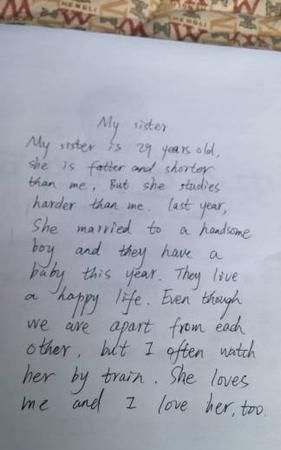 My sister
My sister is 29 years old,
she is fatter and shorter
than me, But she studies
harder than me. last year,
She married to a handsome
boy and they have a
baby this year. They live
a happy life. Even though
we are apart from each
other, but I often watch
her by train. She loves
me and I love her, too.